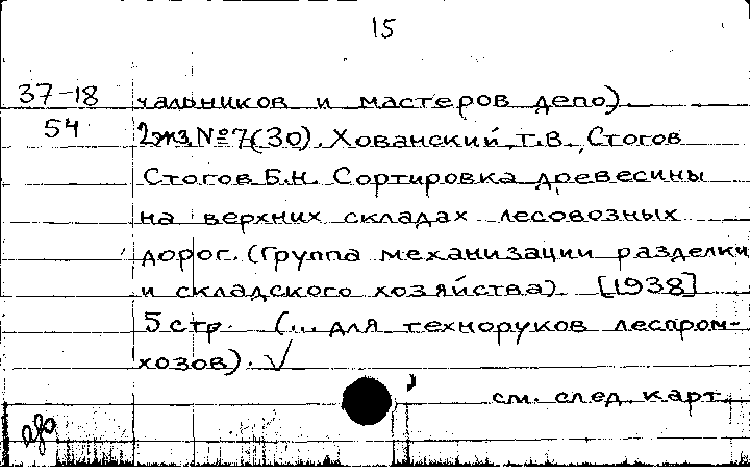 15
37-18 чальников и мастеров депо).
54 2 экз. №7(30). Хованский Т.В., Стогов
Стогов Б.Н. Сортировка древесины
на верхних складах лесовозных
дорог. (Группа механизации разделки
и складского хозяйства) [1938]
5 стр. (... для техноруков леспром-
хозов). √
см. след. карт.